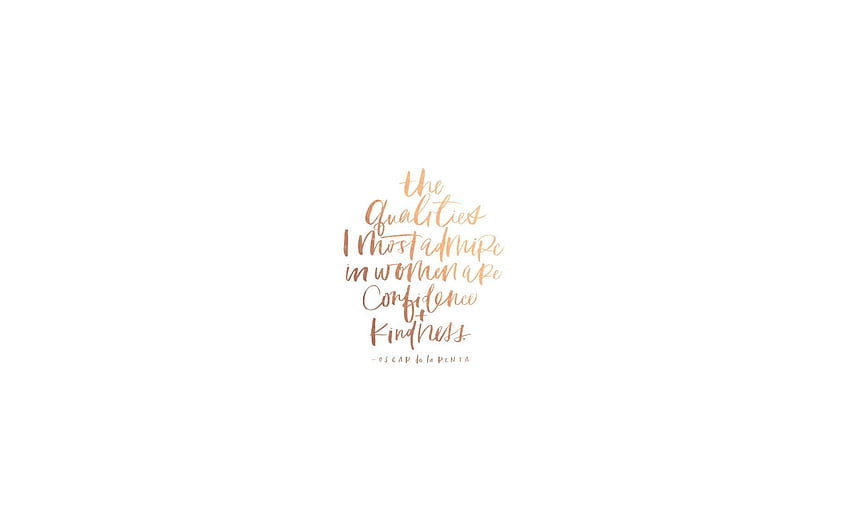 the
Qualities
I most admire
in women are
Confidence
+
Kindness.
- OSCAR de la RENTA